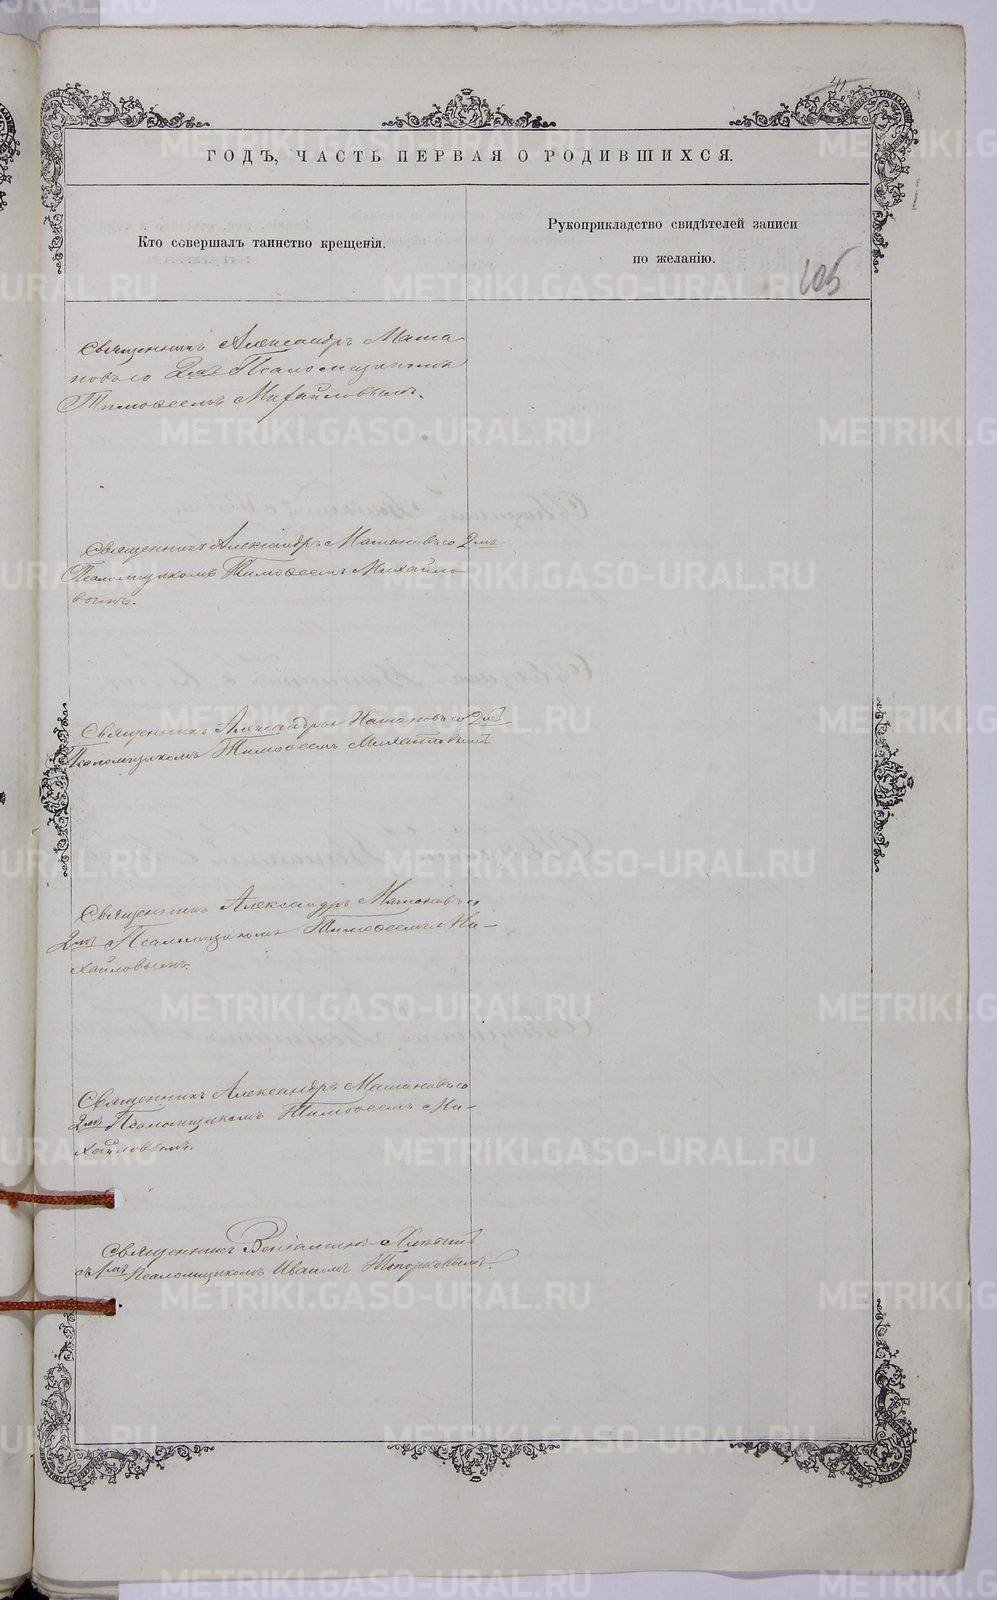 ГОДЪ, ЧАСТЬ ПЕРВАЯ О РОДИВШИХСЯ.
Кто совершалъ таинство крещенія.
Рукоприкладство свидѣтелей записи
по желанію.
105
Священникъ Александръ Маша
новъ со 2мъ Псаломщикомъ
Тимоѳеемъ Михайловымъ.
Священникъ Александръ Машановъ со 2мъ
Псаломщикомъ Тимоѳеемъ Михайло
вымъ.
Священникъ Александръ Машановъ со 2мъ
Псаломщикомъ Тимоѳеемъ Михайловымъ
Священникъ Александръ Машановъ со
2мъ Псаломщикомъ Тимоѳеемъ Ми-
хайловымъ.
Священникъ Александръ Машановъ со
2мъ Псаломщикомъ Тимоѳеемъ Ми-
хайловымъ.
Священникъ Веніаминъ
съ 1мъ Псаломщикомъ Иваномъ Топорковымъ.
METRIKI.GASO-URAL.RU